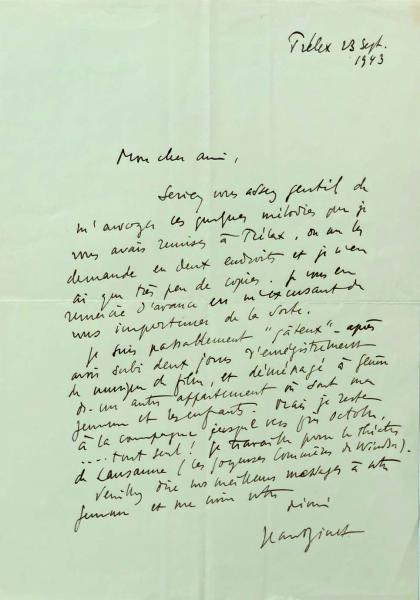 Trélex 23 Sept.
1943
Mon cher ami,
Seriez vous assez gentil de
m'envoyer ces quelques mélodies que je
vous avais remises à Trélex, on me les
demande en deux endroits et je n'en
ai que très peu de copies. Je vous en
remercie d'avance en m'excusant de
vous importuner de la sorte.
Je suis passablement "gâteux" - après
avoir subi deux jours d'enregistrement
de musique de film, et déménagé à Genève
un autre appartement où sont ma
femme et les enfants. Mais je reste
à la campagne jusque vers fin octobre,
.... tout seul! Je travaille pour le Théâtre
de Lausanne (Les Joyeuses Commères de Windsor).
Veuillez dire nos meilleurs messages à votre
femme et me croire votre